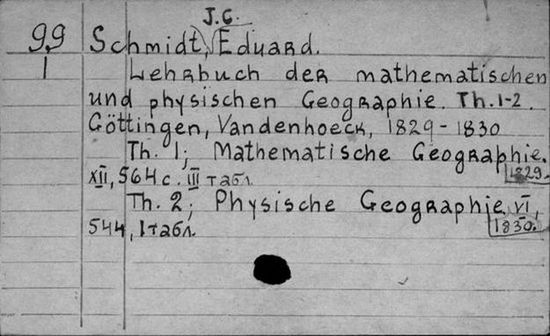 J.G.
99 Schmidt, Eduard.
1 Lehrbuch der mathematischen
und physischen Geographie. Th. 1-2.
Göttingen, Vandenhoeck, 1829-1830
Th. 1; Mathematische Geographie.
1829.
XII, 564 c. III табл.
Th. 2; Physische Geographie VI,
1830.
544, I табл.